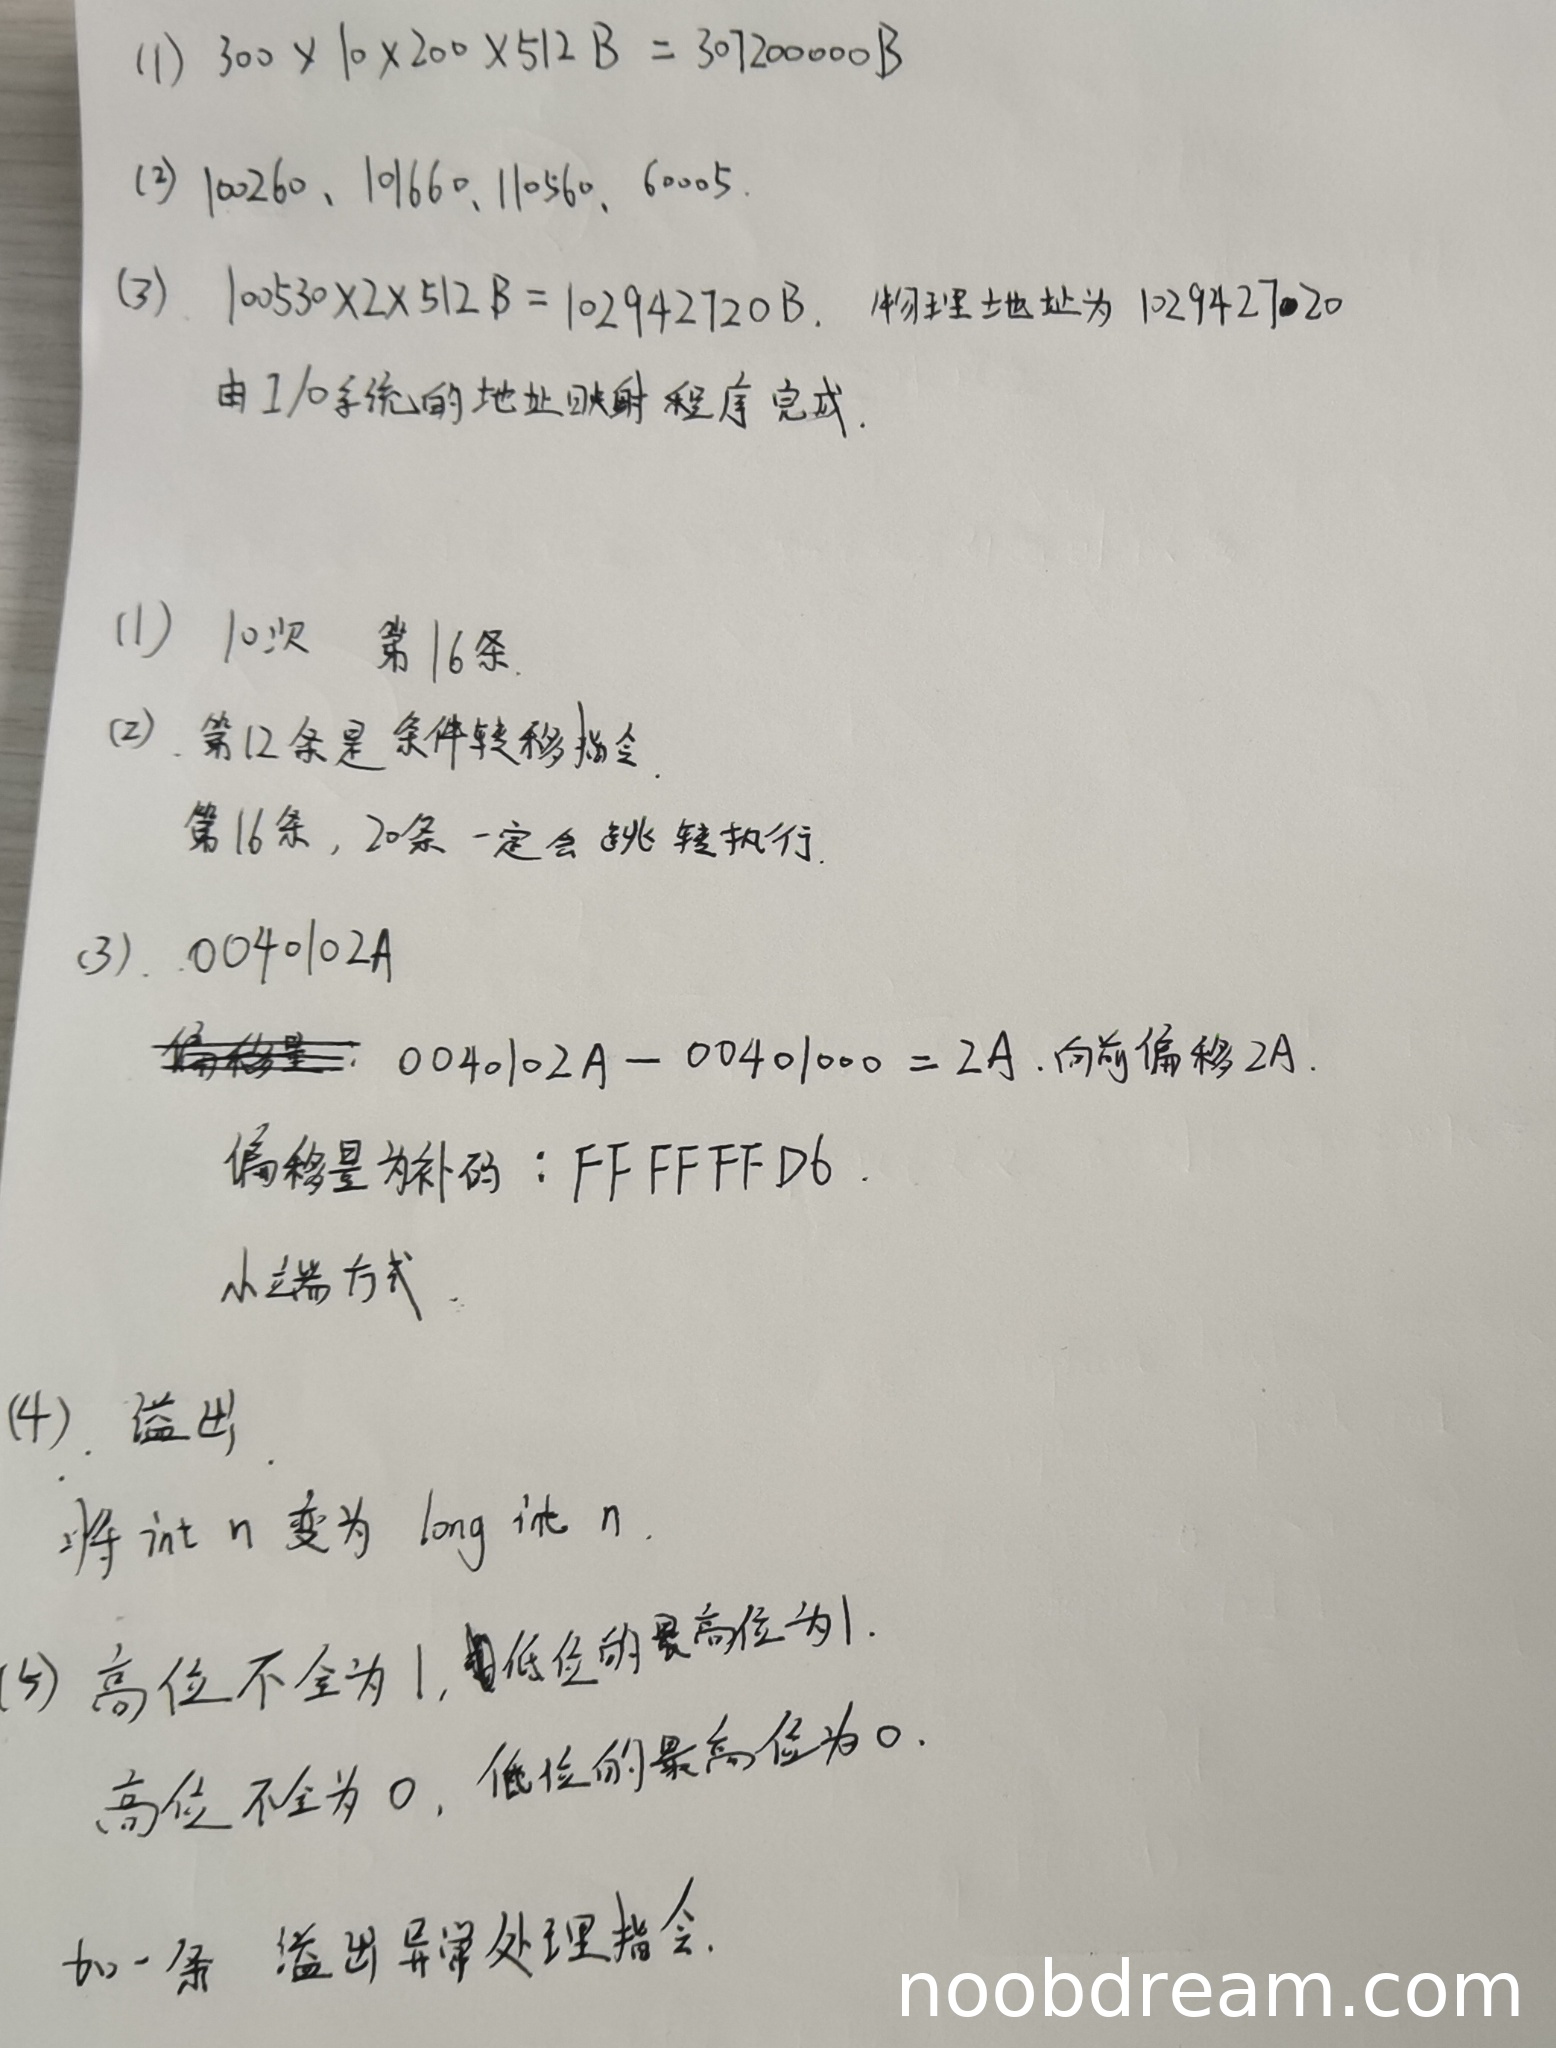 (1) 300×10×200×512B = 307200000B
(2) 100260、101660、110560、60005.
(3) 100530×2×512B=102942720B. 物理地址为 102942720
由I/O系统的地址映射程序完成.
(1) 10次 第16条.
(2). 第12条是条件转移指令.
第16条, 20条一定会跳转执行.
(3). 0040102A
偏移量: 0040102A - 00401000 = 2A.向前偏移2A.
偏移量为补码: FFFFFFD6.
小端方式.
(4). 溢出.
将 int n 变为 long int n.
(5) 高位不全为1, 低位的最高位为1.
高位不全为0, 低位的最高位为0.
加一条 溢出异常处理指令.
noobdream.com